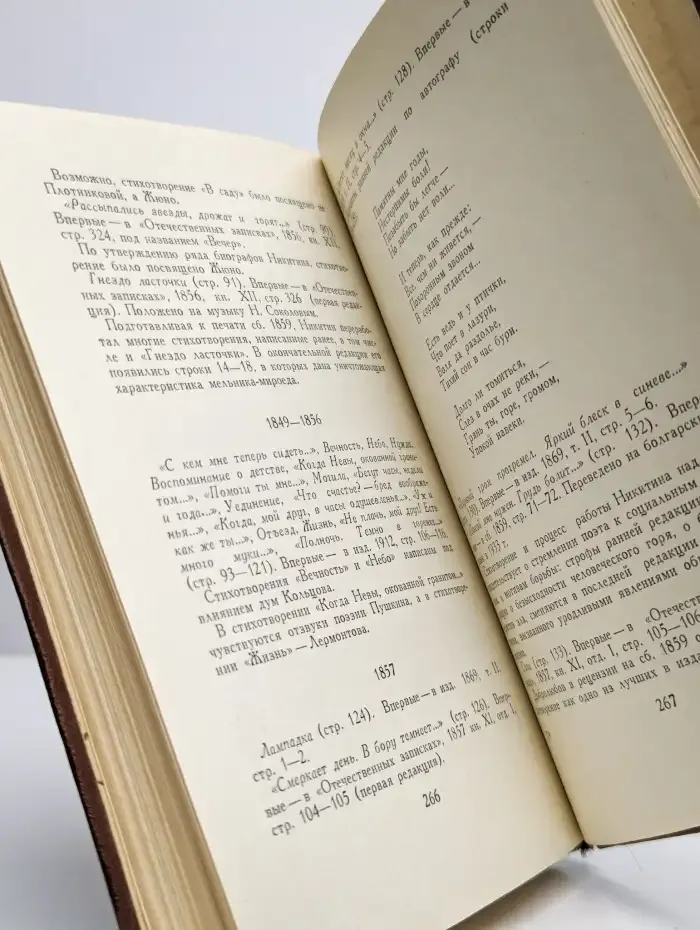 Возможно, стихотворение «В саду» было посвящено не
Плотниковой, а Жюно.
«Рассыпались звезды, дрожат и горят...» (стр. 90).
Впервые — в «Отечественных записках», 1856, кн. XII,
стр. 324, под названием «Вечер».
По утверждению ряда биографов Никитина, стихотво-
рение было посвящено Жюно.
Гнездо ласточки (стр. 91). Впервые — в «Отечествен-
ных записках», 1856, кн. XII, стр. 326 (первая редак-
ция). Положено на музыку Н. Соколовым.
Подготавливая к печати сб. 1859, Никитин перерабо-
тал многие стихотворения, написанные ранее, в том чис-
ле и «Гнездо ласточки». В окончательной редакции его
появились строки 14—18, в которых дана уничтожающая
характеристика мельника-мироеда.
1849—1856
«С кем мне теперь сидеть...», Вечность, Небо, Нужда,
Воспоминание о детстве, «Когда Невы, окованной грани-
том...», «Помоги ты мне...», Могила, «Бегут часы, недели
и года...», Уединение, «Что счастье? — бред воображе-
нья...», «Когда, мой друг, в часы одушевленья...», «Ух и
как же ты...», Отъезд, Жизнь, «Не плачь, мой друг! Есть
много муки...», «Полночь. Темно в горенке...»
(стр. 93—121). Впервые — в изд. 1912, стр. 106—116.
Стихотворения «Вечность» и «Небо» написаны под
влиянием дум Кольцова.
В стихотворении «Когда Невы, окованной гранитом...»
чувствуются отзвуки поэзии Пушкина, а в стихотворе-
нии «Жизнь» — Лермонтова.
1857
Лампадка (стр. 124). Впервые — в изд. 1869, т. II,
стр. 1—2.
«Смеркает день. В бору темнеет...» (стр. 126). Впер-
вые — в «Отечественных записках», 1857 кн. XI, отд. I,
стр. 104—105 (первая редакция).
266
(стр. 128). Впервые — в
редакции по автографу (строки
Памятны мне годы,
боли!
бы легче —
Но забыть нет воли...
И теперь, как прежде:
Все, чем ни живется, —
Похоронным звоном
В сердце отдается...
Есть ведь и у птички,
Что поет в лазури,
Воля да раздолье,
Тихий сон в час бури.
Долго ли томиться,
Слез в очах не реки, —
Грянь ты, горе, громом,
Упокой навеки.
Яркий блеск в синеве...»
Впервые — в изд. 1869, т. II, стр. 5—6.
Грудь болит...» (стр. 132). Впер
сб. 1859, стр. 71—72. Переведено на болгарски
в 1935 г.
и процесс работы Никитина над
о стремлении поэта к социальным
мотивам борьбы: строфы ранней редакции
о безысходности человеческого горя, о
зла, сменяются в последней редакции
вызванного уродливыми явлениями общ
(стр. 133). Впервые — в «Отечеств
1857, кн. XI, отд. I, стр. 105—106
Добролюбов в рецензии на сб. 1859 о
как одно из лучших в изд
267